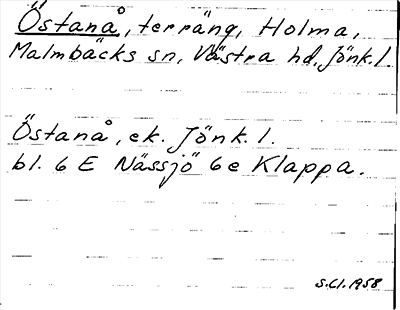 Östanå, terräng, Holma,
Malmbäcks sn, Västra hd, Jönk. l.
Östanå, ek. Jönk. l.
bl. 6 E Nässjö 6 e Klappa.
S.Cl. 1958